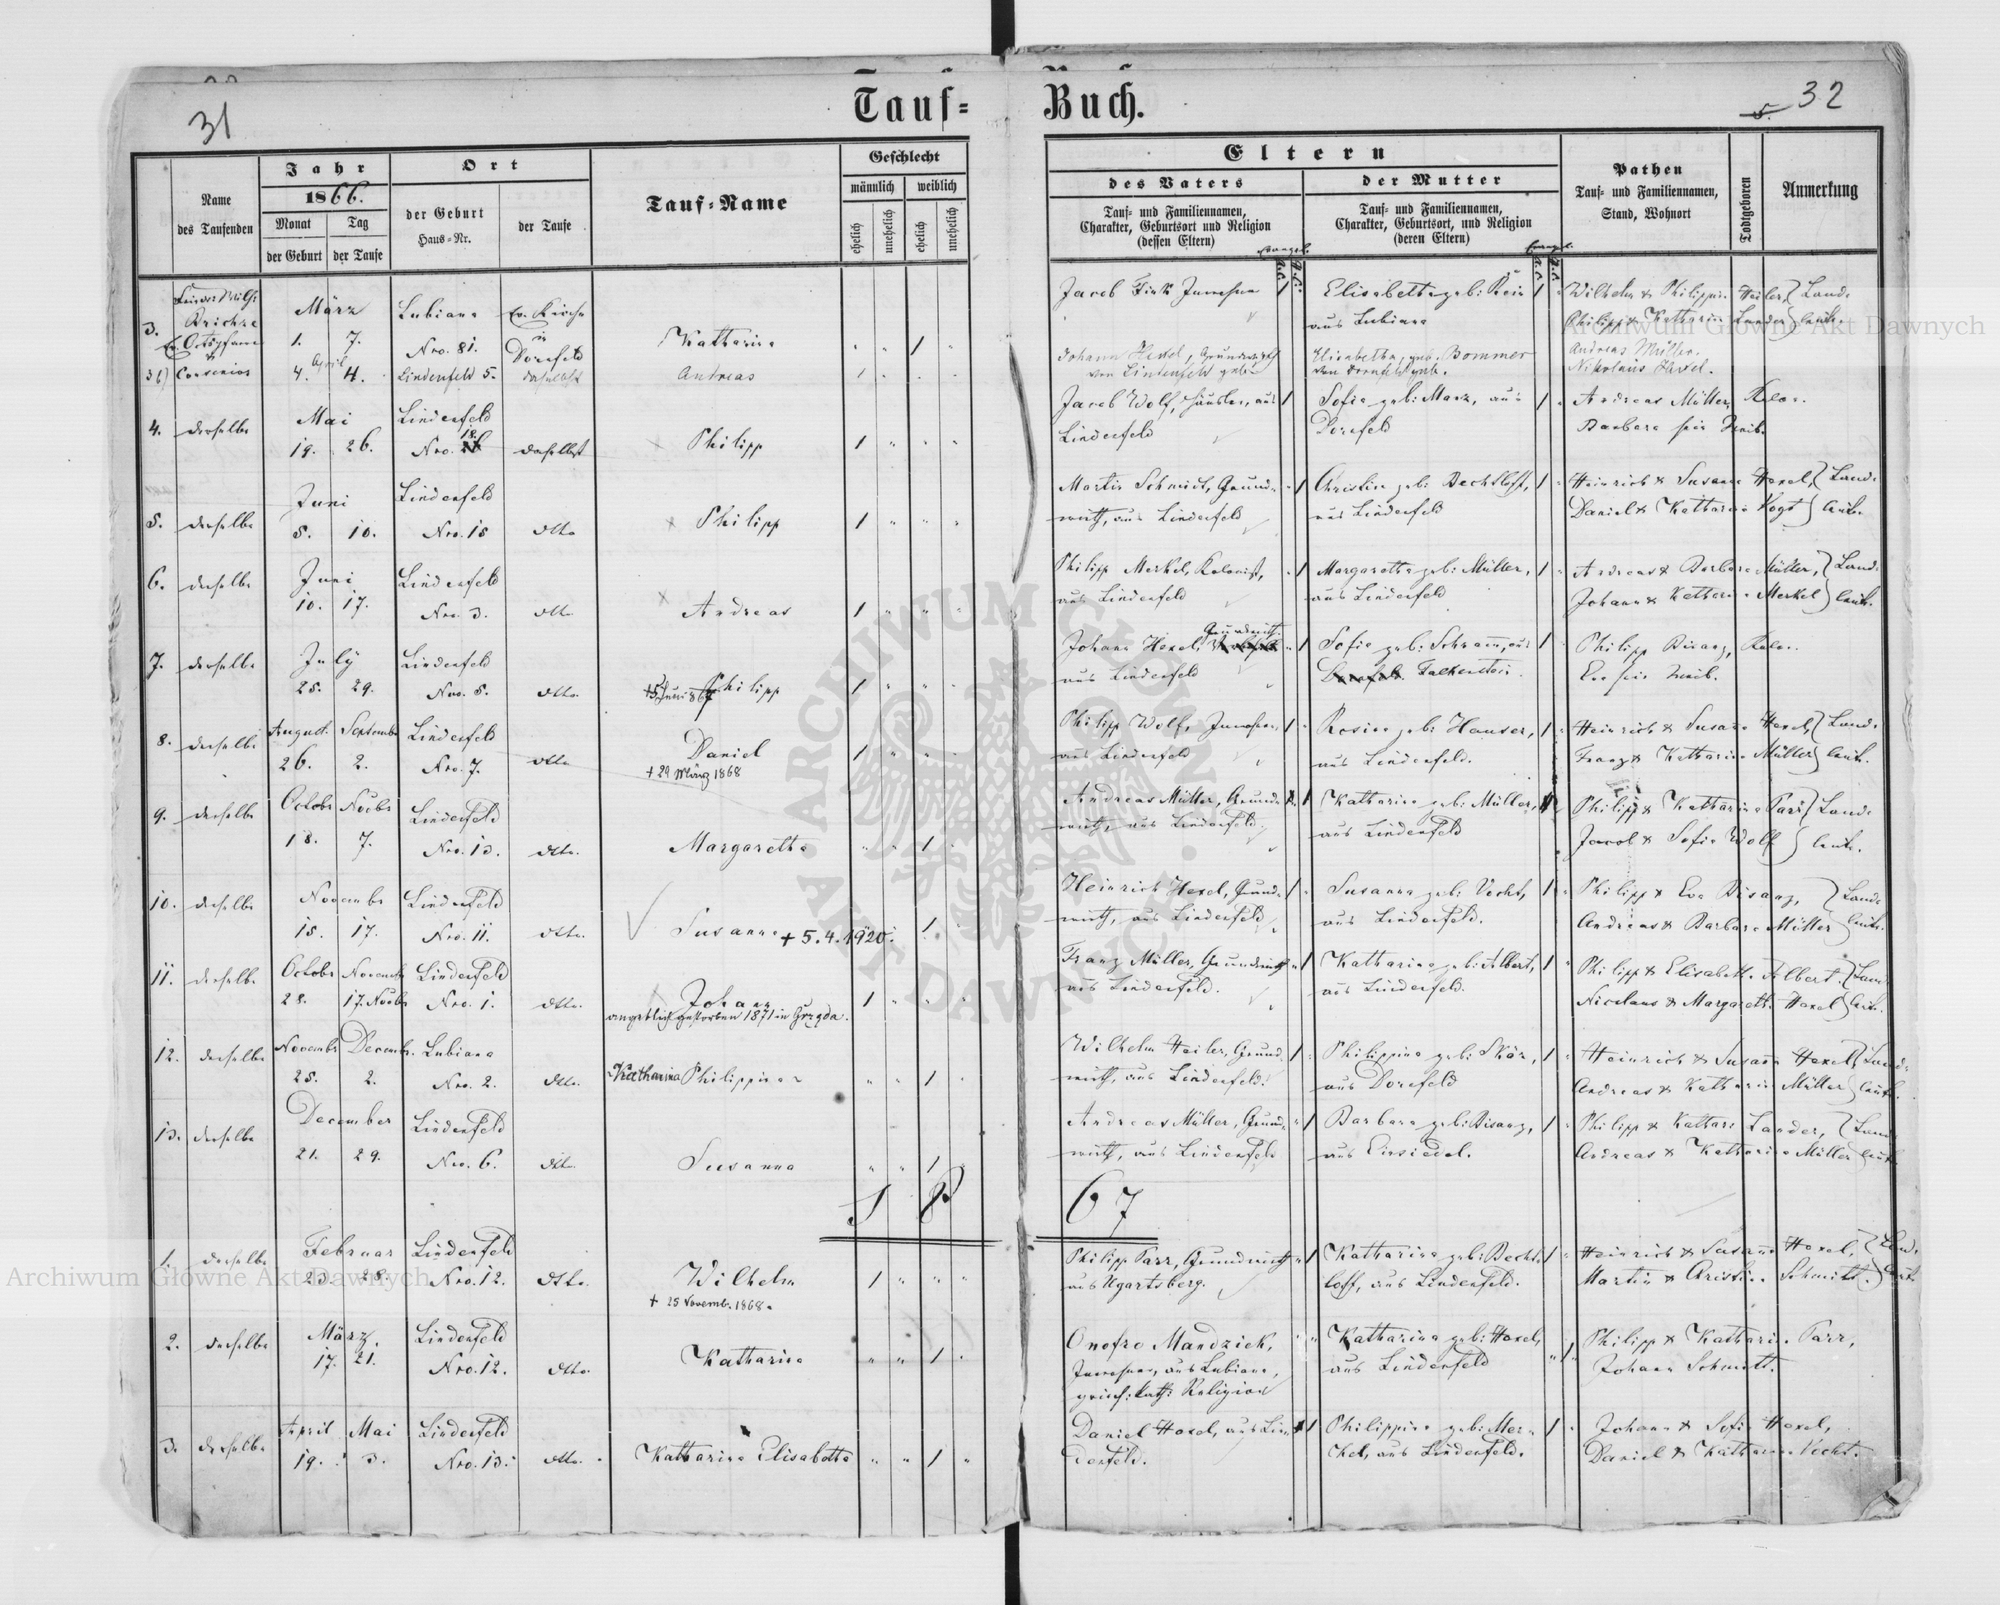 31
Tauf= Buch.
5. 32
Name des Taufenden
Jahr 1866.
Monat der Geburt
Tag der Taufe
Ort
der Geburt Haus-Nr.
der Taufe
Tauf-Name
Geschlecht
männlich weiblich
ehelich unehelich ehelich unehelich
Eltern
des Vaters
Tauf- und Familiennamen, Charakter, Geburtsort und Religion (dessen Eltern)
der Mutter
Tauf- und Familiennamen, Charakter, Geburtsort, und Religion (deren Eltern)
Pathen
Tauf- und Familiennamen, Stand, Wohnort
Todtgeboren
Anmerkung
3. März 1. 7. Lubiana Nro. 81. ev. Kirche in Dornfeld Katharina 1
Elisabetha geb: aus Lubiana
Wilhelm & Philippina Heiler, Philipp & Katharina Lander Landleute.
3b) April 4. 4. Lindenfeld 5. daselbst Andreas
Johann Hexel, Grundwirth von Lindenfeld
Elisabetha, geb. Bommer
Andreas Müller.
Nikolaus Hexel.
4. derselbe Mai 19. 26. Lindenfeld Nro. 18. daselbst Philipp 1
Jacob Wolf, Häusler, aus Lindenfeld
Sofia geb: Manz, aus Dornfeld
Andreas Müller,
Barbara sein Weib.
5. derselbe Juni 5. 10. Lindenfeld Nro. 15 dtto Philipp 1
Martin Schmitt, Grundwirth, aus Lindenfeld
Christina geb: Bechtloff, aus Lindenfeld
Heinrich & Susanna Hexel, Daniel & Katharina Vogt Landleute.
6. derselbe Juni 10. 17. Lindenfeld Nro. 3. dtto Andreas 1
Philipp Merkel, Kolonist, aus Lindenfeld
Margaretha geb: Müller, aus Lindenfeld
Andreas & Barbara Müller, Johann & Katharina Merkel Landleute.
7. derselbe July 25. 29. Lindenfeld Nro. 8. dtto. Philipp 1
Johann Hexel, Grundwirth aus Lindenfeld
Sofia geb: Schramm, aus Falkenstein.
Philipp Bisanz,
Eva sein Weib.
8. derselbe August September 26. 2. Lindenfeld Nro. 7. dtto Daniel 1
+ 29 März 1868
Philipp Wolf, aus Lindenfeld
Rosina geb: Hauser, aus Lindenfeld.
Heinrich & Susanna Hexel, Franz & Katharina Müller Landleute.
9. derselbe Octobr Novbr 18. 7. Lindenfeld Nro. 13. dtto. Margaretha 1
Andreas Müller, Grundwirth, aus Lindenfeld.
Katharina geb: Müller, aus Lindenfeld
Philipp & Katharina Parr, Jacob & Sofia Wolf Landleute.
10. derselbe November 15. 17. Lindenfeld Nro. 11. dtto. Susanna + 5.4.1920. 1
Heinrich Hexel, Grundwirth, aus Lindenfeld
Susanna geb: Vecht, aus Lindenfeld.
Philipp & Eva Bisanz, Andreas & Barbara Müller Landleute.
11. derselbe Octobr November 28. 17. Novbr Lindenfeld Nro. 1. dtto. Johann 1
angeblich gestorben 1871 in Grzęda.
Franz Müller, Grundwirth aus Lindenfeld.
Katharina geb: Albert, aus Lindenfeld.
Philipp & Elisabeth Albert, Nicolaus & Margareth. Hexel Landleute.
12. derselbe Novembr Decembr. 25. 2. Lubiana Nro. 2. dtto. Katharina Philippina 1
Wilhelm Heiler, Grundwirth, aus Lindenfeld.
Philippina geb: Skär, aus Dornfeld
Heinrich & Susanna Hexel, Andreas & Katharina Müller Landleute.
13. derselbe December 21. 29. Lindenfeld Nro. 6. dtto. Susanna 1
Andreas Müller, Grundwirth, aus Lindenfeld
Barbara geb: Bisanz, aus Einsiedel.
Philipp & Kathari Lander, Andreas & Katharina Müller Landleute
1 8 6 7
1. derselbe Februar 23. 28. Lindenfeld Nro. 12. dtto. Wilhelm 1
+ 25 Novemb. 1868.
Philipp Parr, Grundwirth aus Ugartsberg.
Katharina geb: Bechtloff, aus Lindenfeld.
Heinrich & Susanna Hexel, Martin & Christina Schmitt. Landleute
2. derselbe März. 17. 21. Lindenfeld Nro. 12. dtto. Katharina 1
Onofro Mandziek, aus Lubiana, griech: kath: Religion
Katharina geb: Hexel, aus Lindenfeld
Philipp & Katharina Parr, Johann Schmitt.
3. derselbe April Mai 19. 3. Lindenfeld Nro. 13. dtto. Katharina Elisabetha 1
Daniel Hexel, aus Lindenfeld.
Philippina geb: Merkel, aus Lindenfeld.
Johann & Sofia Hexel, Daniel & Katharina Vecht.
Archiwum Główne Akt Dawnych
Archiwum Główne Akt Dawnych
ARCHIWUM GŁÓWNE AKT DAWNYCH